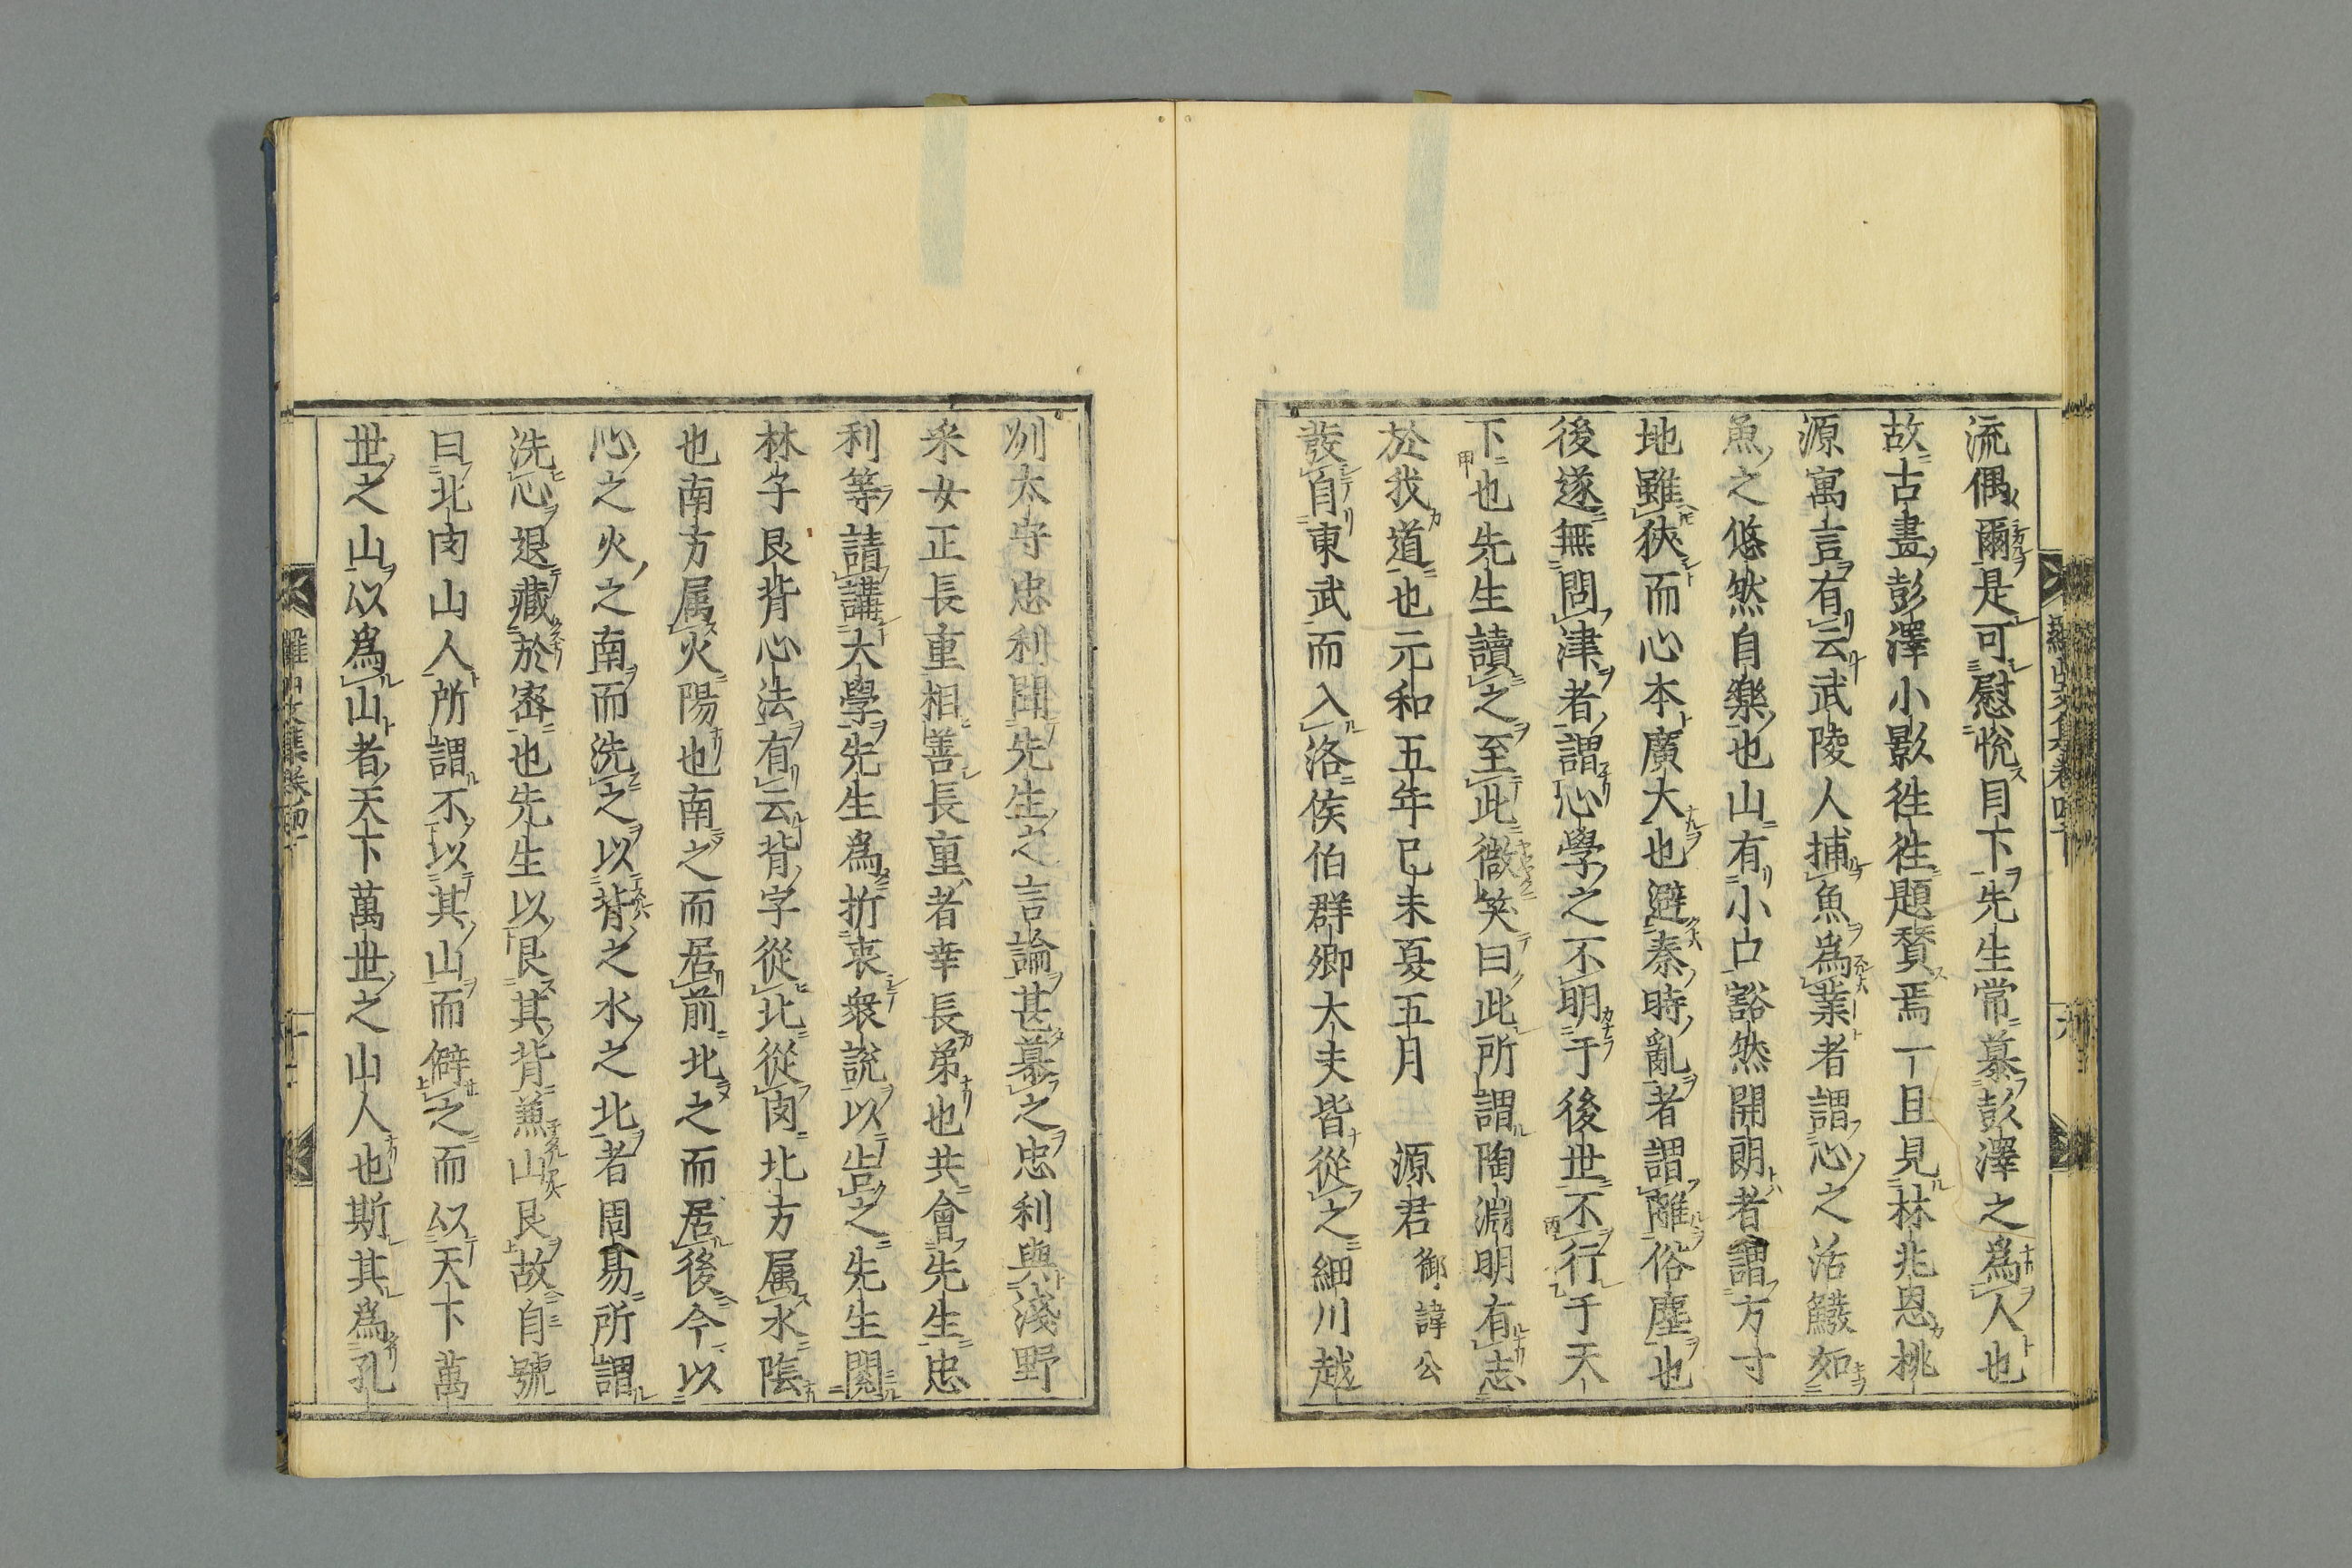 流偶爾是可慰悅目下先生常慕彭澤之爲人也
故古畫彭澤小影徃徃題賛焉一且見林兆恩桃
源寓言有云武陵人捕魚爲業者謂心之活鱍如
魚之悠然自樂也山有小口豁然開朗者謂方寸
地雖狹而心本廣大也避秦時亂者謂離俗塵也
後遂無問津者謂心學之不明于後世不行于天
下也先生讀之至此微笑曰此所謂陶淵明有志
於我道也元和五年己未夏五月 源君御諱公
發自東武而入洛侯伯群卿大夫皆從之細川越
刕太守忠利聞先生之言論甚慕之忠利與淺野
釆女正長重相善長重者幸長弟也共會先生忠
利等請講大學先生爲折衷衆説以告之先生閱
林子艮背心法有云背字從北從肉北方属水隂
也南方属火陽也南之而居前北之而居後今以
心之火之南而洗之以背之水之北者周易所謂
洗心退藏於密也先生以艮其背兼山艮故自號
曰北肉山人所謂不以其山而僻之而以天下萬
世之山以爲山者天下萬世之山人也斯其爲孔
羅山文集卷四十
羅山文集卷四十